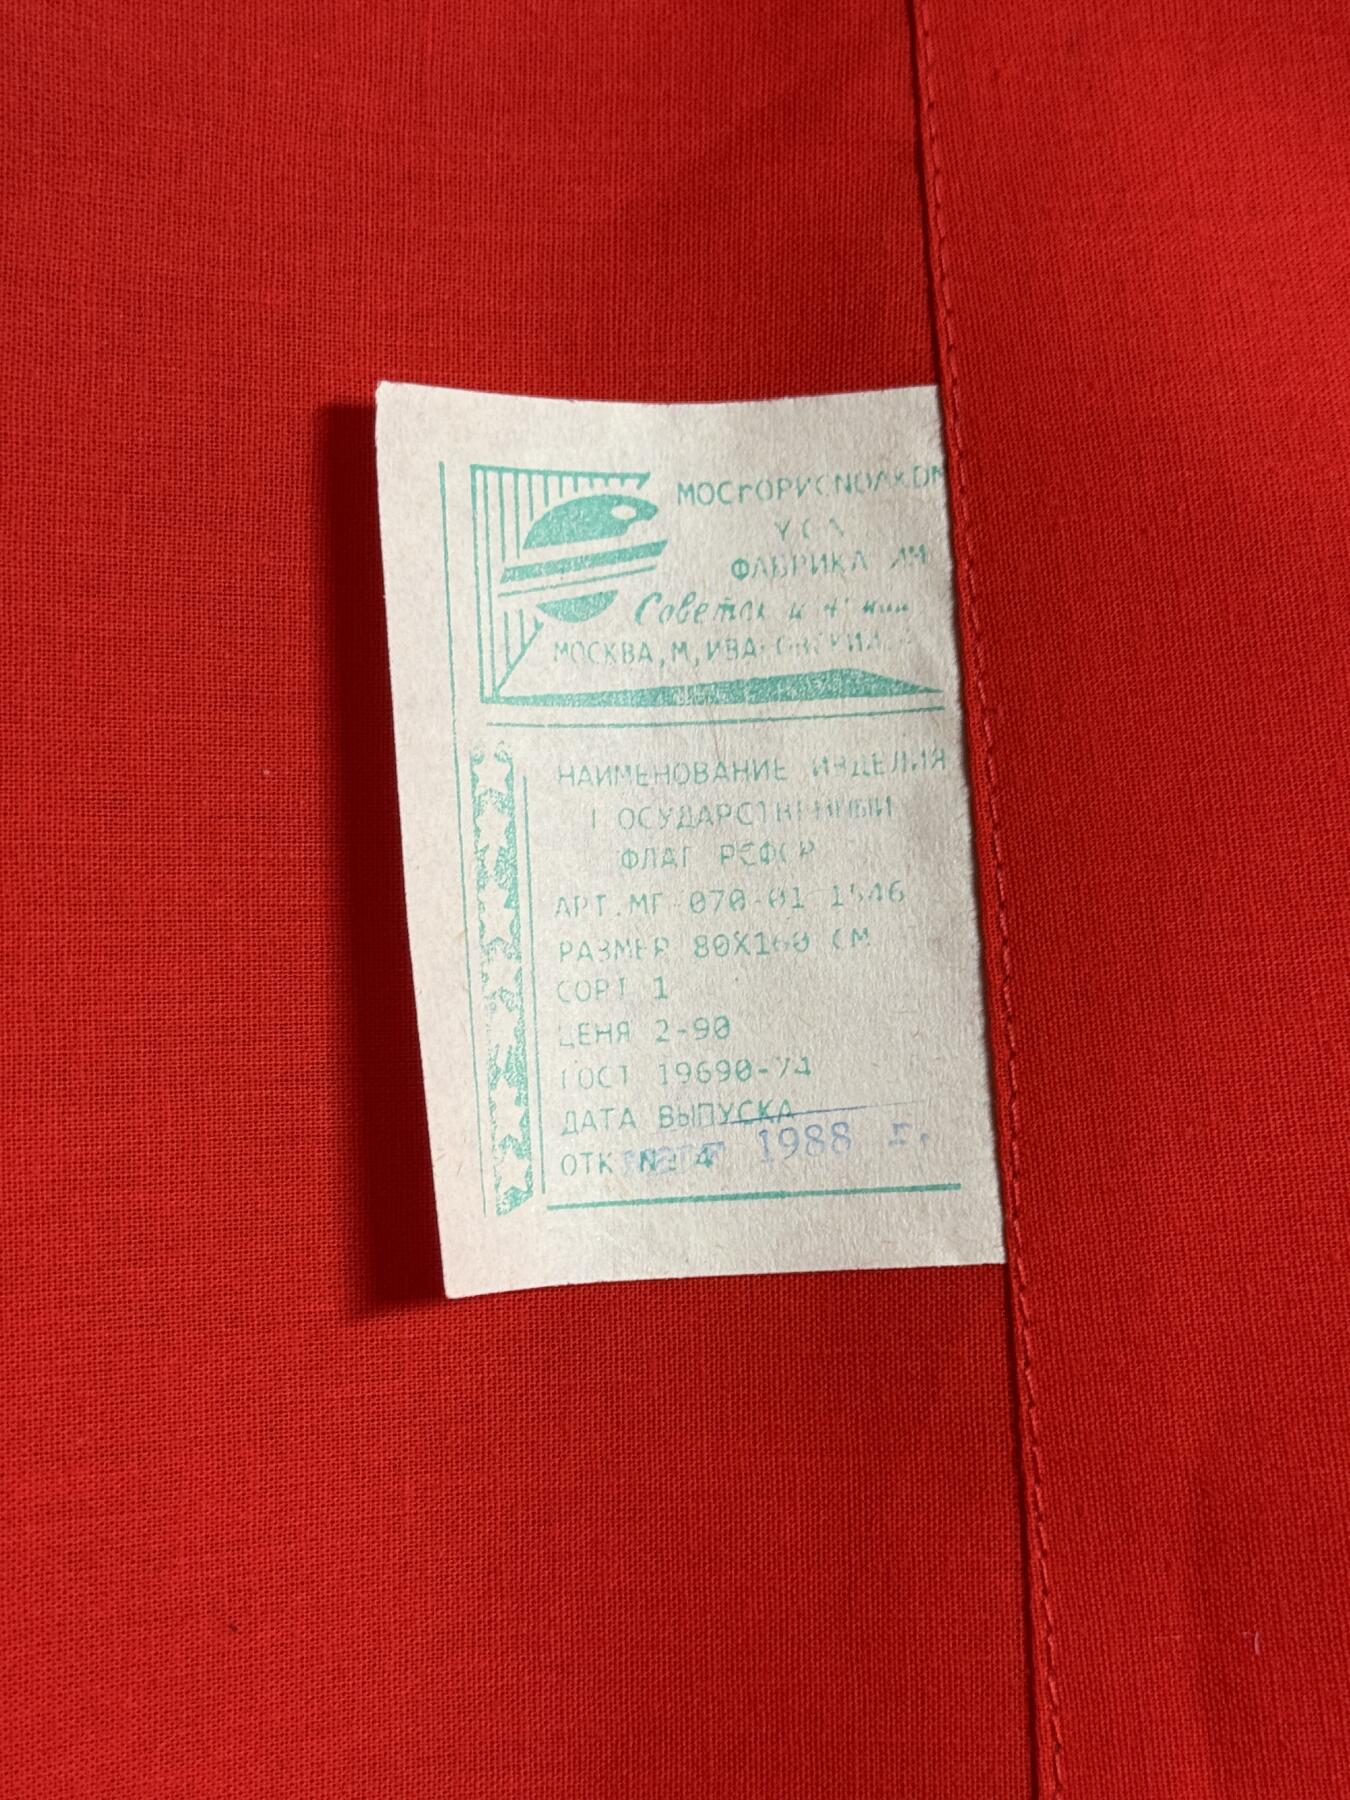 МОСГОРИСПОЛКОМ
ФАБРИКА ИМ
МОСКВА, М,
НАИМЕНОВАНИЕ ИЗДЕЛИЯ
ГОСУДАРСТВЕННЫЙ
ФЛАГ РСФСР
АРТ.МГ-070-01 1546
РАЗМЕР 80Х160 СМ
СОРТ 1
ЦЕНА 2-90
ГОСТ 19690-74
ДАТА ВЫПУСКА
1988 г.
ОТК № 4